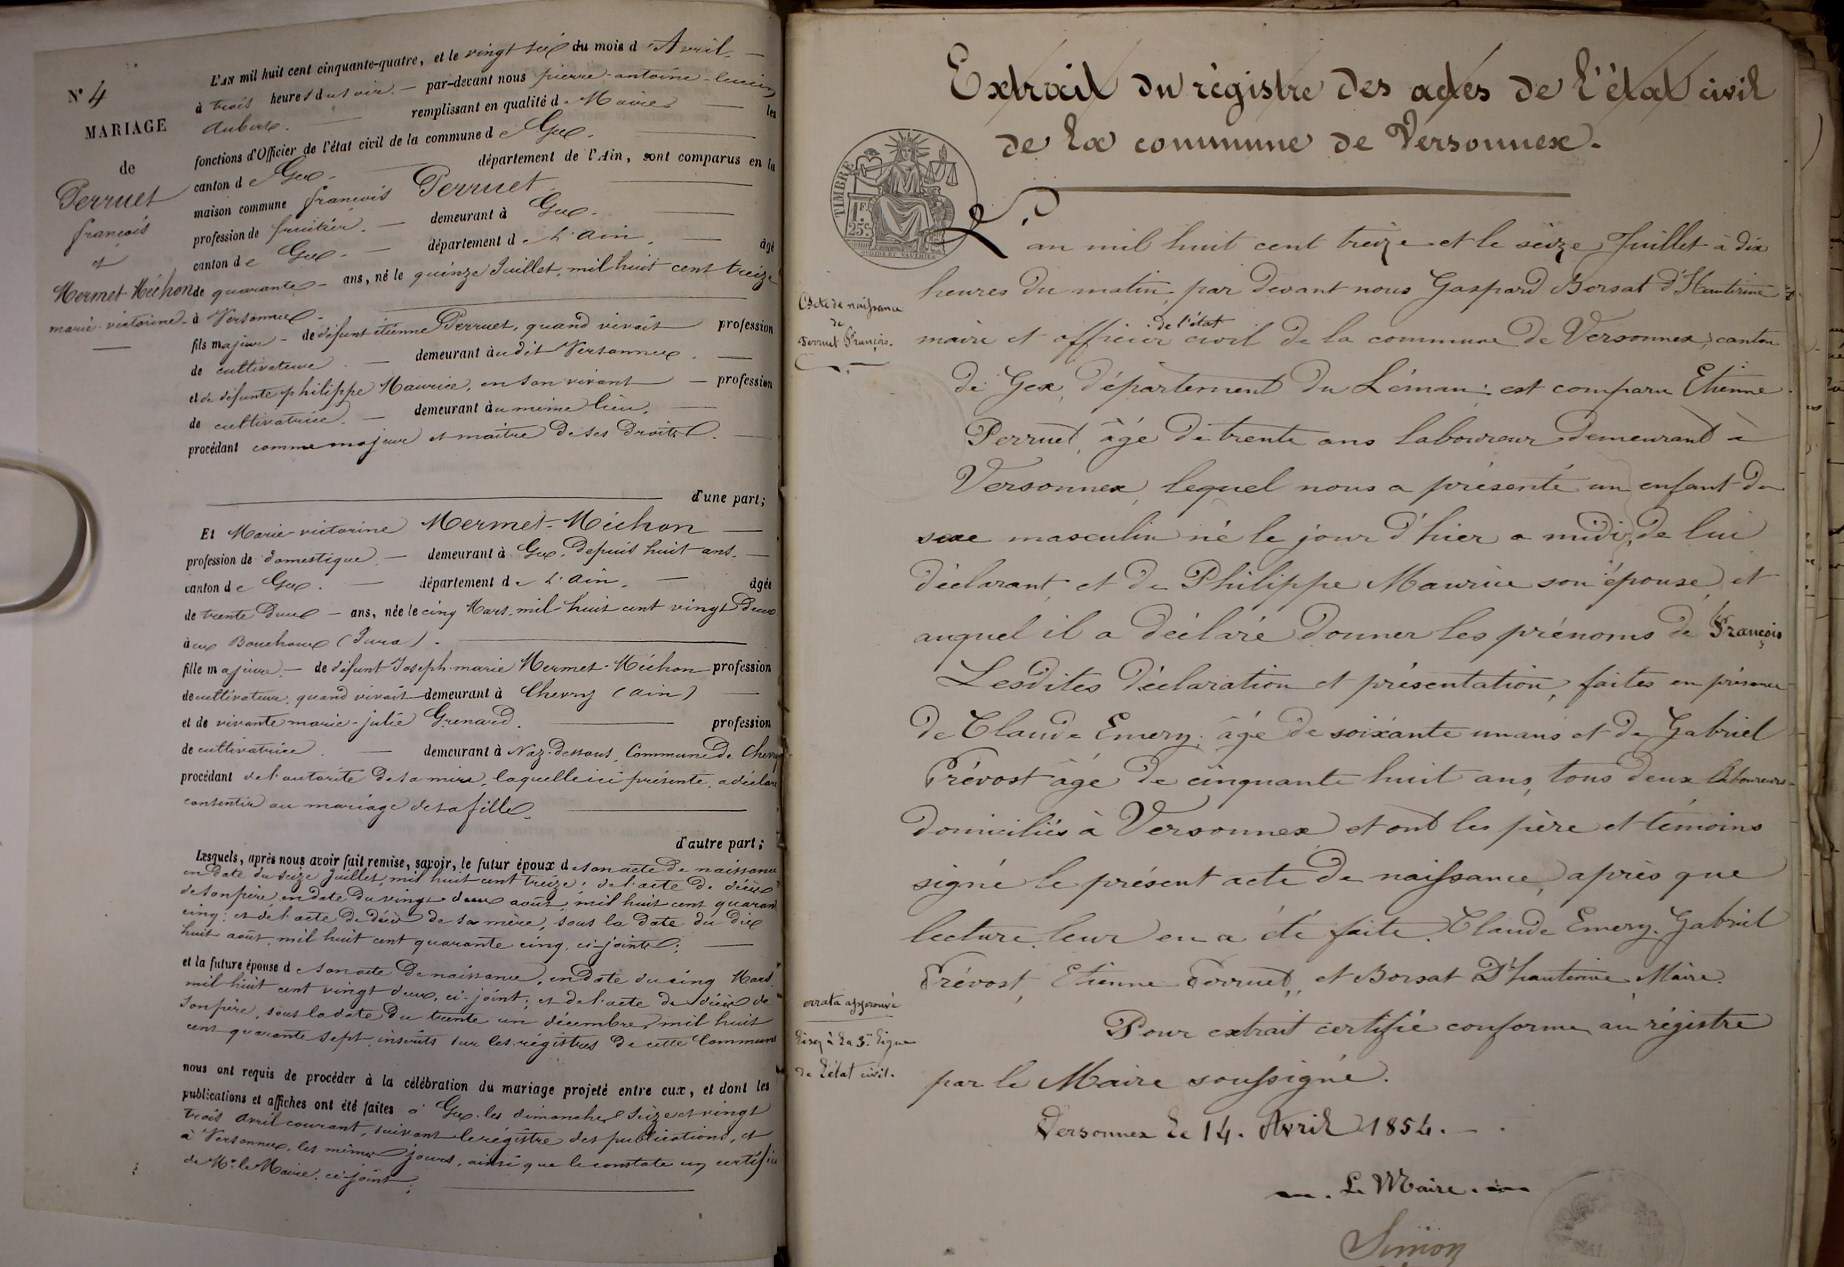 N° 4
MARIAGE
de
Perruet
françois
et
Mermet-Méchon
marie-victorine
L'AN mil huit cent cinquante-quatre, et le vingt six du mois d'Avril
à trois heures du soir par-devant nous pierre-antoine-lucien
Aubert remplissant en qualité de Maire les
fonctions d'Officier de l'état civil de la commune de Gex
canton de Gex département de l'Ain, sont comparus en la
maison commune françois Perruet
profession de fruitier demeurant à Gex
canton de Gex département de l'Ain âgé
de quarante ans, né le quinze Juillet mil huit cent treize
à Versonnex
fils majeur de défunt étienne Perruet, quand vivait profession
de cultivateur demeurant audit Versonnex
et de défunte philippe Maurice, en son vivant profession
de cultivatrice demeurant au même lieu,
procédant comme majeur et maître de ses droits
d'une part;
Et Marie-victorine Mermet-Méchon
profession de domestique demeurant à Gex, depuis huit ans,
canton de Gex département de l'Ain, âgée
de trente deux ans, née le cinq Mars mil huit cent vingt deux
aux Bouchoux (Jura)
fille majeure de défunt Joseph-marie Mermet-Méchon profession
de cultivateur, quand vivait demeurant à Chevry (ain)
et de vivante marie-julie Grenard profession
de cultivatrice demeurant à Naz-dessous, Commune de Chevry
procédant de l'autorité de sa mère, laquelle ici présente, a déclaré
consentir au mariage de sa fille.
d'autre part;
Lesquels, après nous avoir fait remise, savoir, le futur époux de son acte de naissance
en date du seize Juillet mil huit cent treize; de l'acte de décès
de son père, en date du vingt deux août, mil huit cent quarante
cinq; et de l'acte de décès de sa mère, sous la date du dix
huit août, mil huit cent quarante cinq, ci-joints;
et la future épouse de son acte de naissance, en date du cinq Mars
mil huit cent vingt deux, ci-joint; et de l'acte de décès de
son père, sous la date du trente un décembre mil huit
cent quarante sept, inscrits sur les registres de cette Commune
nous ont requis de procéder à la célébration du mariage projeté entre eux, et dont les
publications et affiches ont été faites à Gex les dimanches seize et vingt
trois avril courant, suivant le régistre des publications, et
à Versonnex, les mêmes jours, ainsi que le constate un certificat
de Mr. le Maire, ci-joint;
Extrait du régistre des actes de l'état civil
de la commune de Versonnex.
TIMBRE
1 F.
25 c.
Acte de naissance
de
Perruet François.
L'an mil huit cent treize et le seize Juillet à dix
heures du matin, par devant nous Gaspard Borsat d'Hauterive
maire et officier de l'état civil de la commune de Versonnex, canton
de Gex, département du Léman; est comparu Etienne
Perruet, âgé de trente ans laboureur demeurant à
Versonnex, lequel nous a présenté un enfant du
sexe masculin né le jour d'hier a midi, de lui
déclarant, et de Philippe Maurice son épouse, et
auquel il a déclaré donner les prénoms de François
Lesdites déclaration et présentation, faites en présence
de Claude Emery, âgé de soixante un ans et de Gabriel
Prévost âgé de cinquante huit ans, tous deux laboureurs
domiciliés à Versonnex et ont les père et témoins
signé le présent acte de naissance, après que
lecture leur en a été faite. Claude Emery, Gabriel
Prévost, Etienne Perruet, et Borsat D'hauterive Maire.
errata approuvé
lisez à la 3e. ligne
de l'état civil.
Pour extrait certifié conforme au régistre
par le Maire soussigné.
Versonnex le 14. Avril 1854.
Le Maire.
Simon